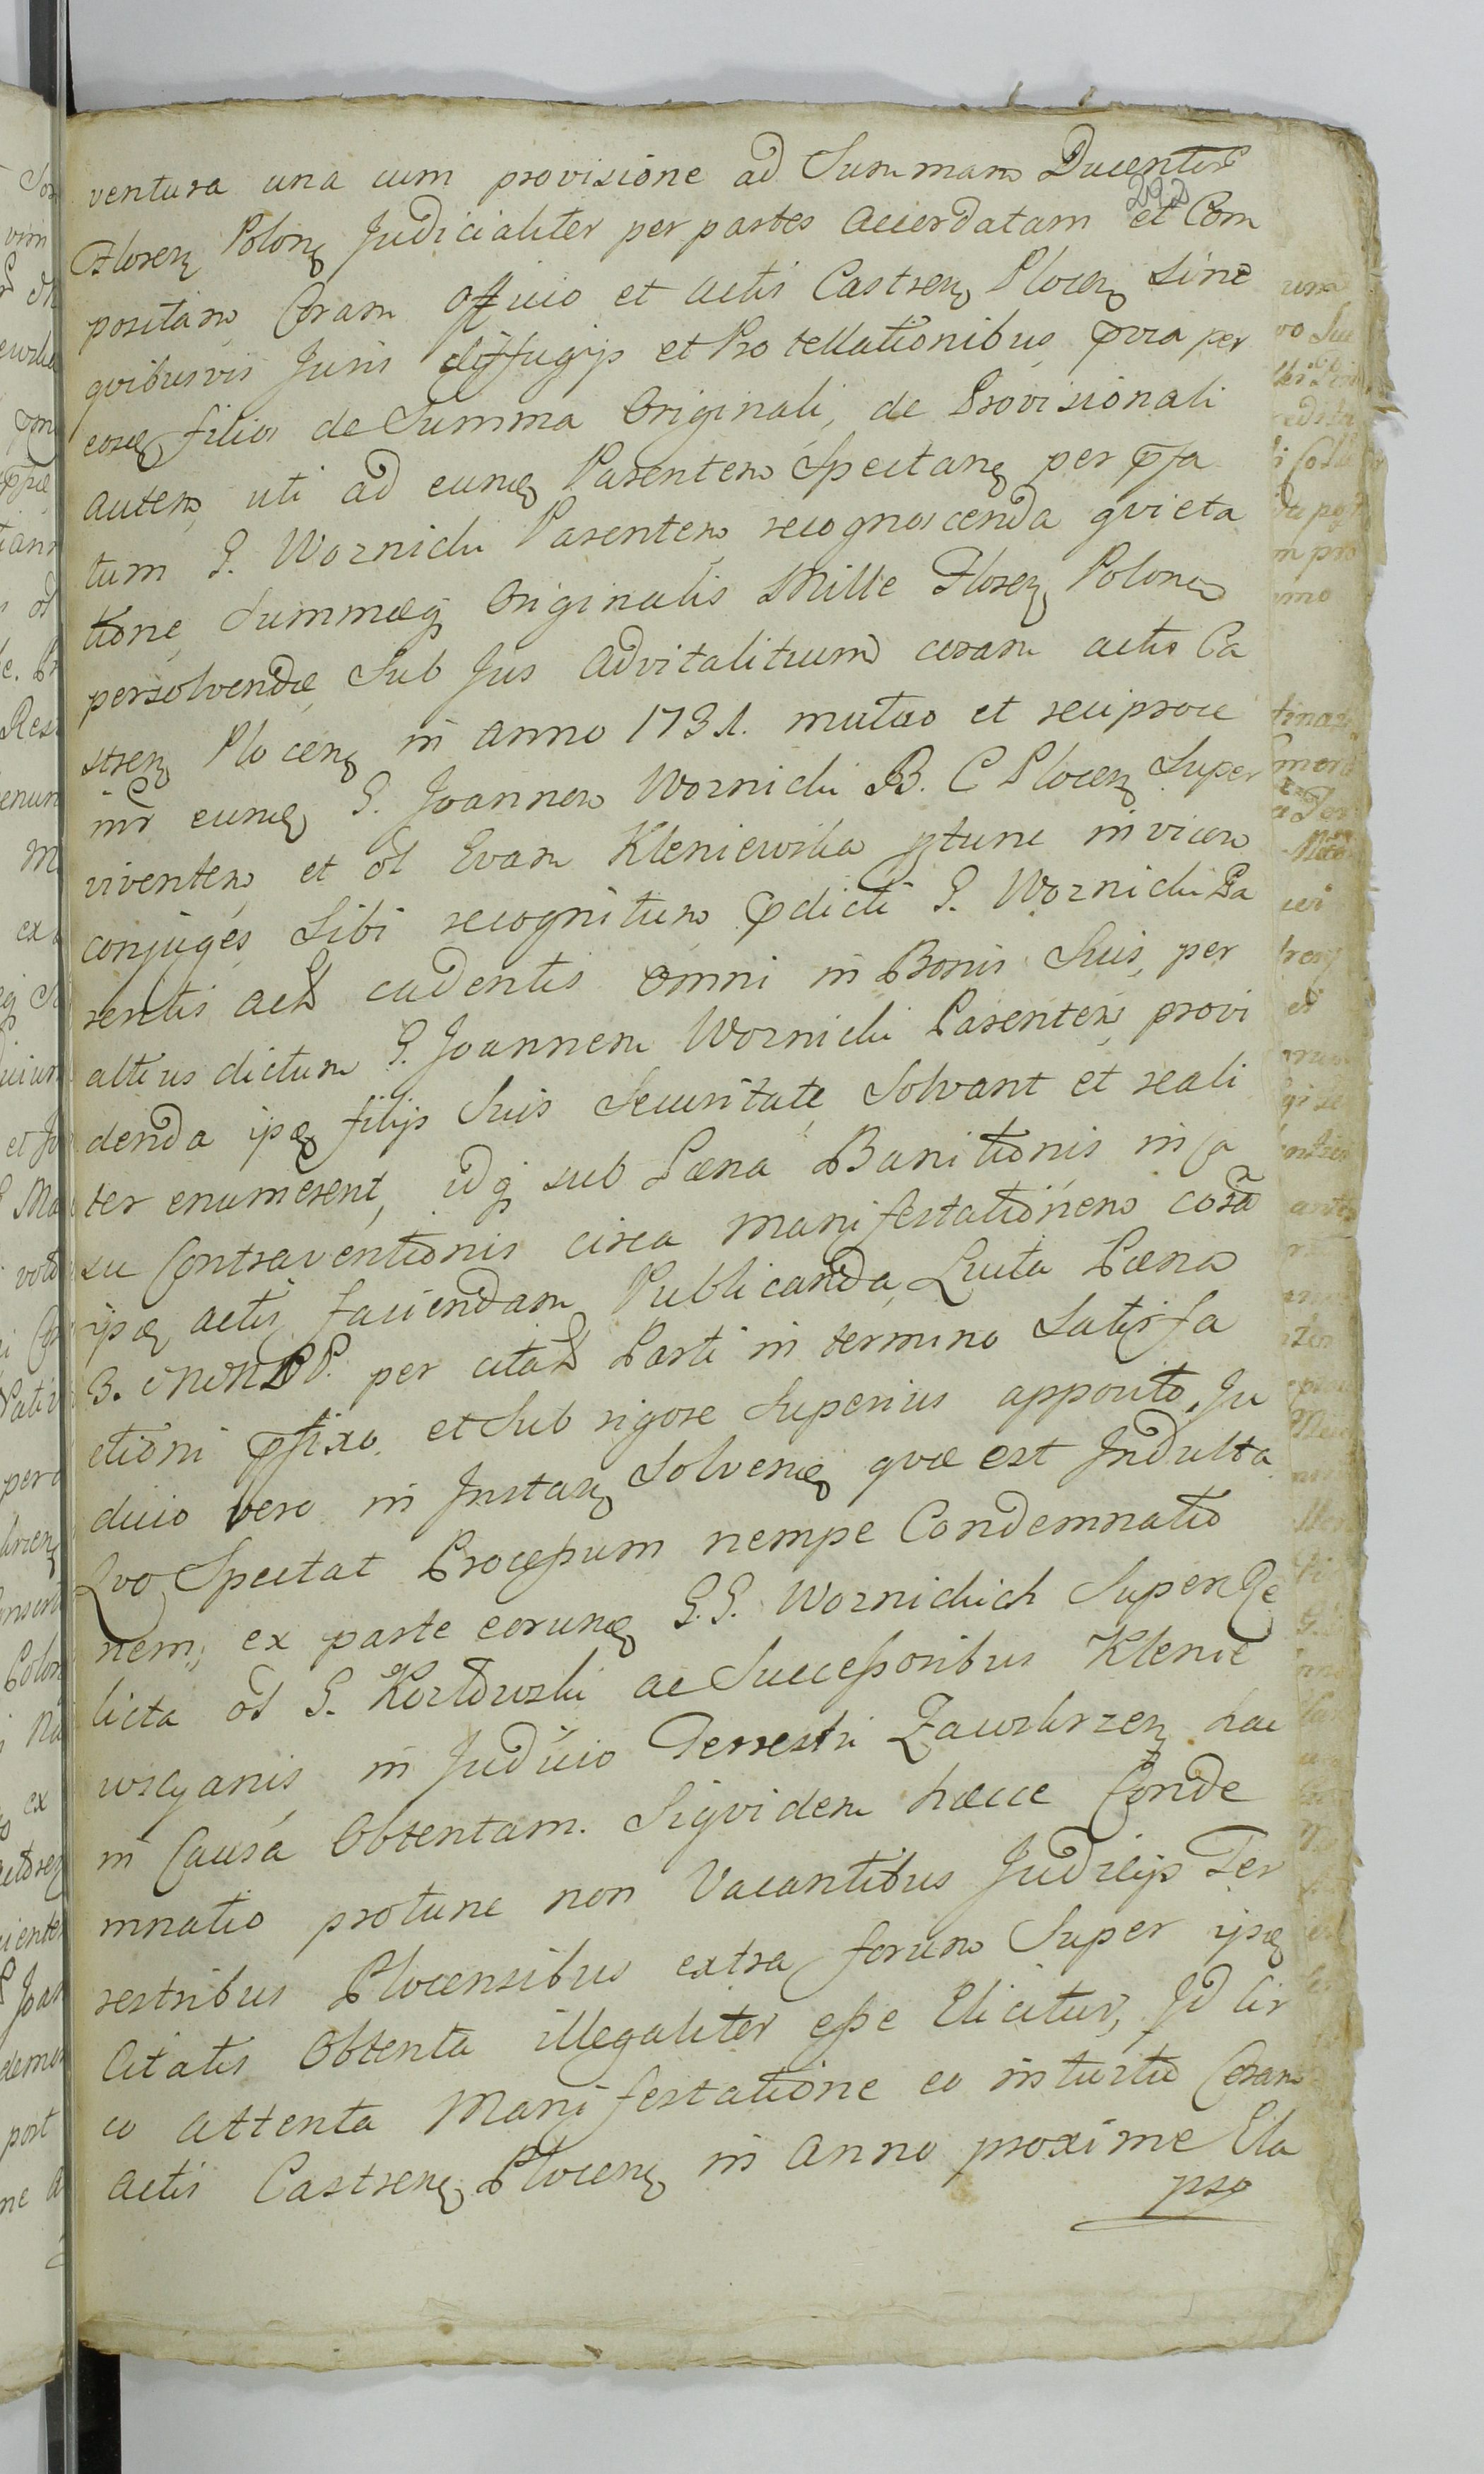 ventura una cum provisione ad Summam Ducentor
292
Floren Polon Judicialiter per partes accordatam et Com
positam Coram Officio et actis Castren Plocen sine
qvibusvis Juris diffugijs et Protellationibus pvia per
eosd filios de Summa Originali, de Provisionali
autem, uti ad eund Parentem Spectan per pfa
tum G. Woznicki Parentem recognoscenda qvieta
tione, Summæq Originalis Mille Floren Polona
persolvendæ, Sub Jus advitalitium coram actis Ca
stren Plocen in anno 1731. mutuo et reciproce
intr eund G. Joannem Woznicki B. C Plocen Super
viventem et ol Evam Kleniewska ptunc invicem
conjuges Sibi recognitum pdicti G. Woznicki Pa
rentis act cadentis omni in Bonis Suis, per
altius dictum G. Joannem Woznicki Parentem, provi
denda ips filijs Suis Securitate, Solvant et reali
ter enumerent, idq sub Pæna Banitionis in ca
su Contraventionis circa manifestationem cora
ips actis faciendam Publicanda, Luita Pæna
3. per citat Parti in termino Satisfa
ctioni pfixo, et Sub rigore Superius apposito, Ju
dicio vero in Instan Solven qvæ est Indulta
Qvo Spectat Processum nempe Condemnatio
nem, ex parte eorund G.G. Woznickich Super Re
licta ol G. Kozlowski ac Successoribus Klenie
wscyanis, in Judicio Terrestri Zawskrzen hac
in Causa Obtentam. Siqvidem hæcce Conde
mnatio protunc non Vacantibus Judicijs Ter
restribus Plocensibus extra forum Super ips
Citatis Obtenta illegaliter esse Elicitur, Id cir
co attenta Manifestatione eo intuitu Coram
actis Castren Plocen in anno proxime Ela
pso